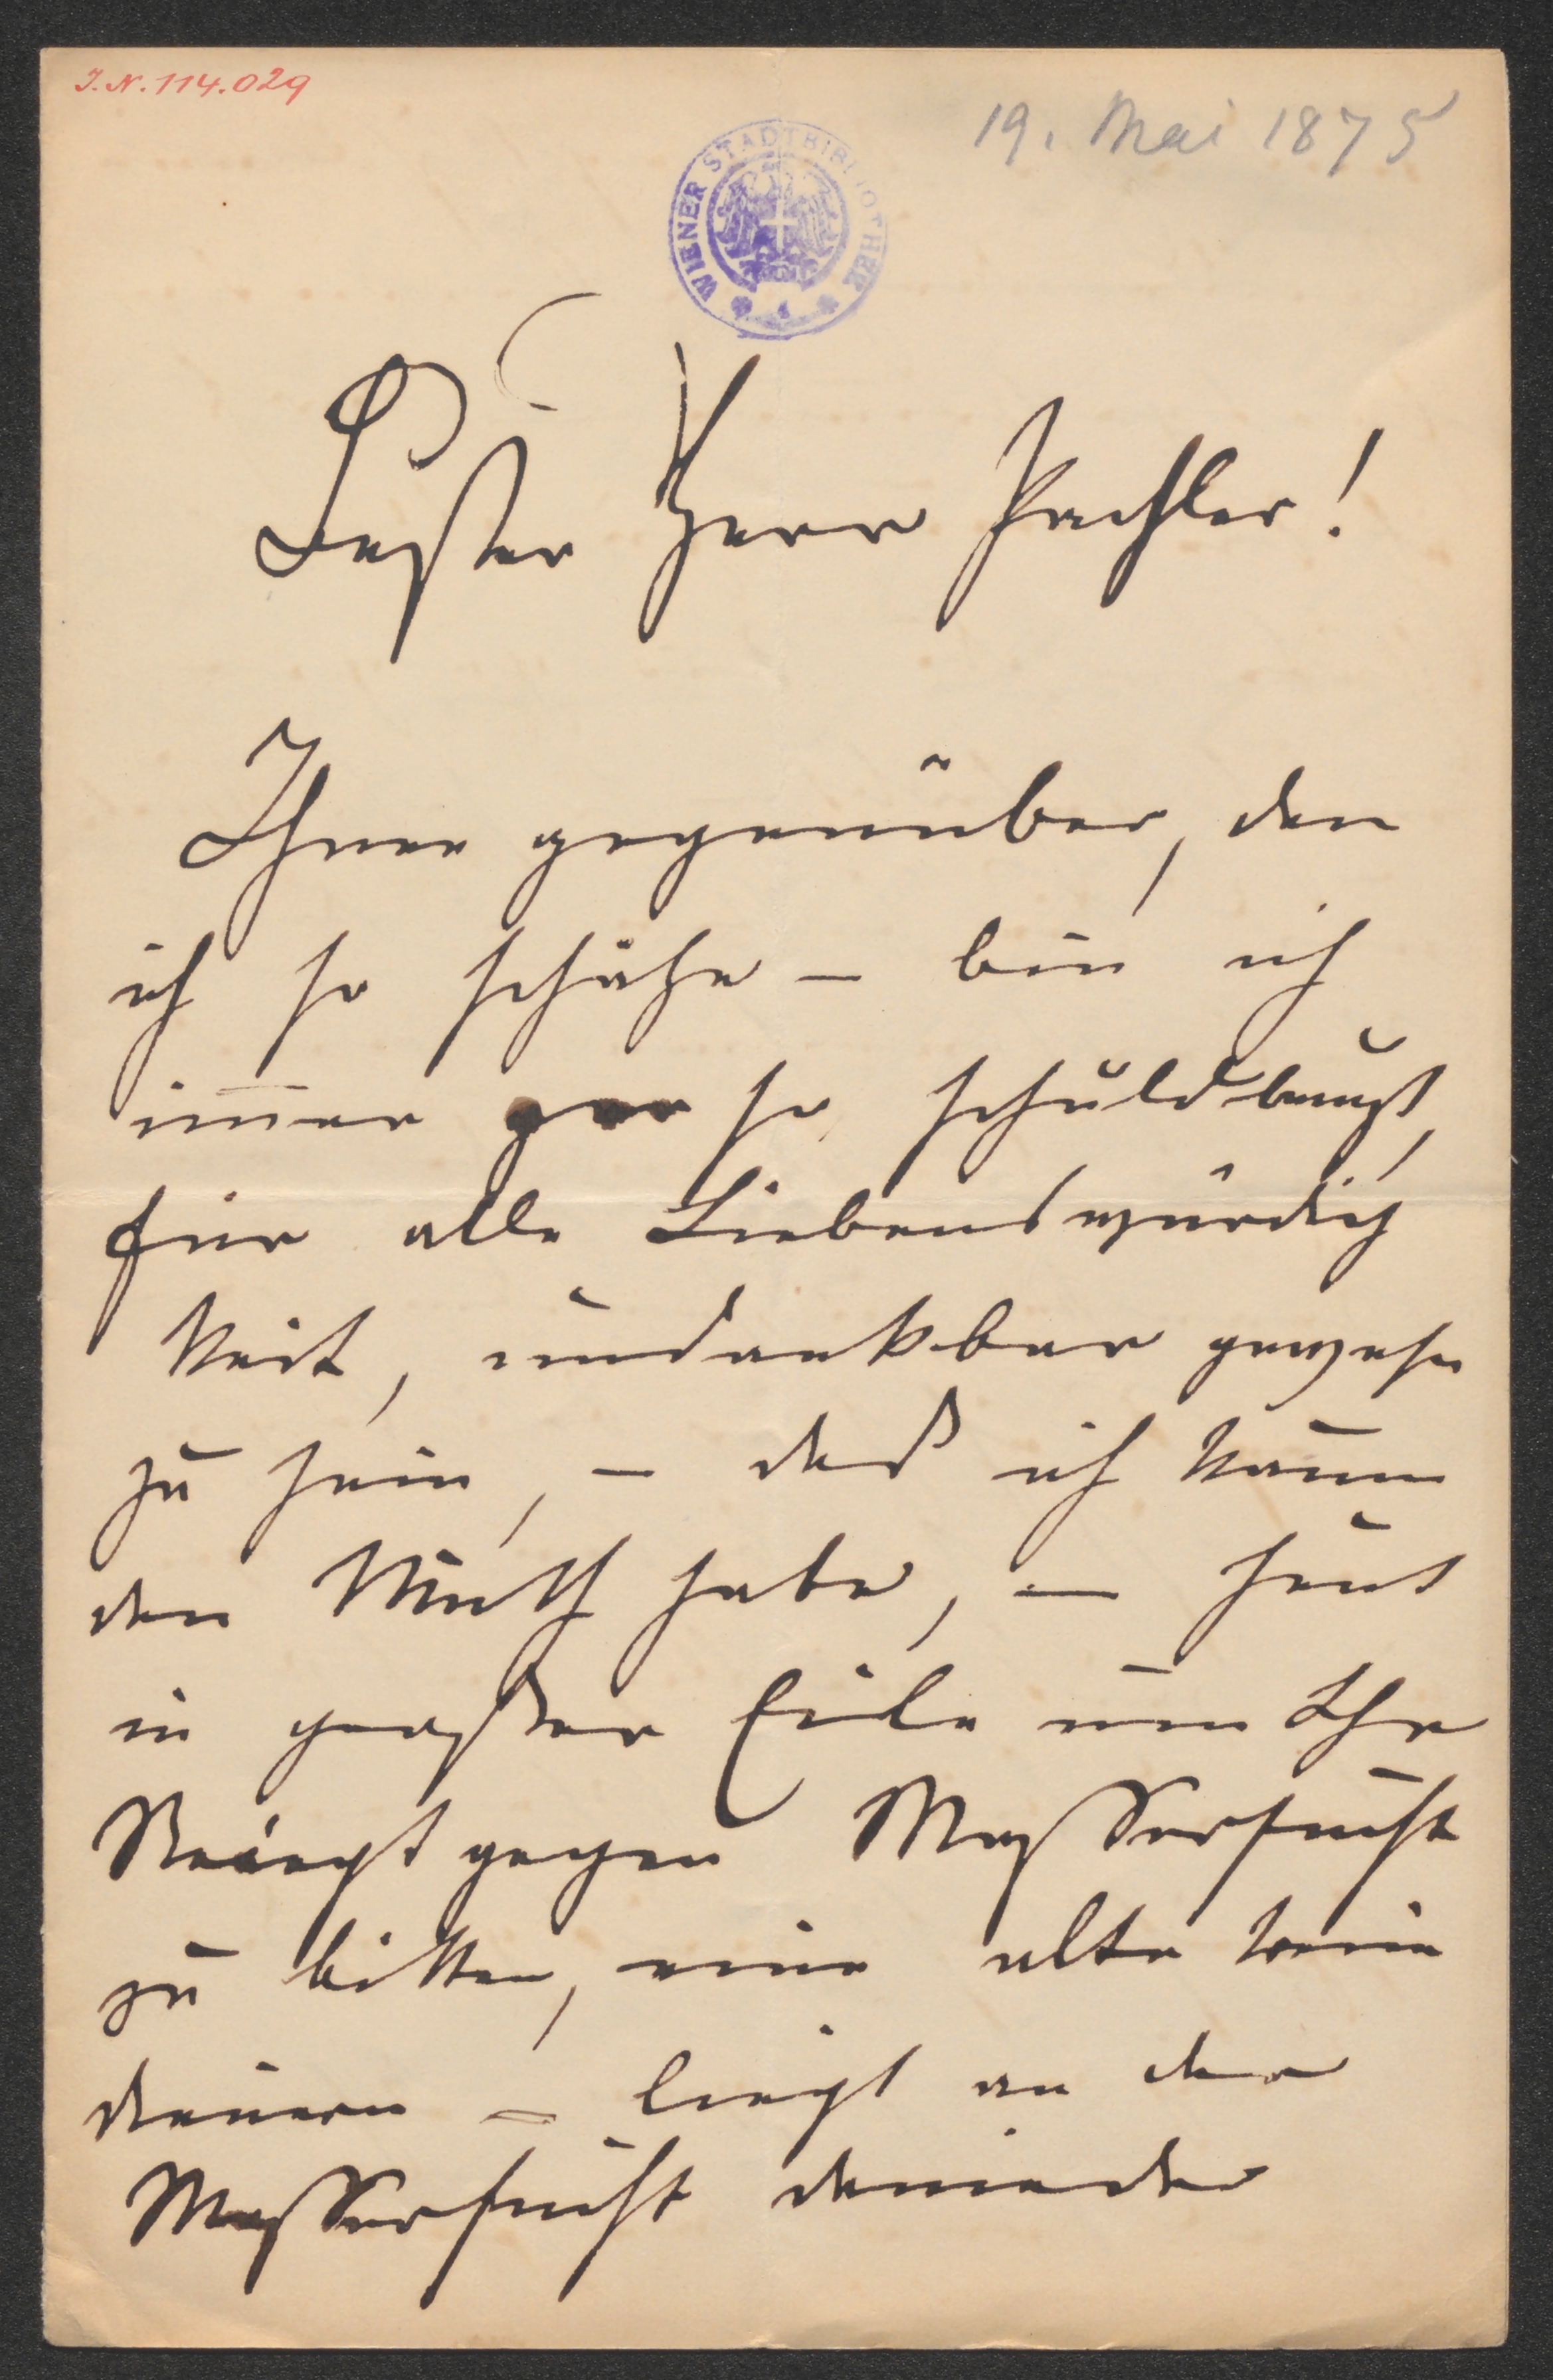 I.N. 114.029
19. Mai 1875
WIENER STADTBIBLIOTHEK
Bester Herr Pachler!
Ihnen gegenüber, den
ich so schätze – bin ich
im̅er gar so schuldbewußt,
für alle Liebenswürdig
keit, undankbar gewesen
zu sein, – daß ich kaum
den Muth habe, – heut
in großer Eile um Ihr
Rezept gegen Wassersucht
zu bitten, eine alte
– liegt an der
Wassersucht darnieder